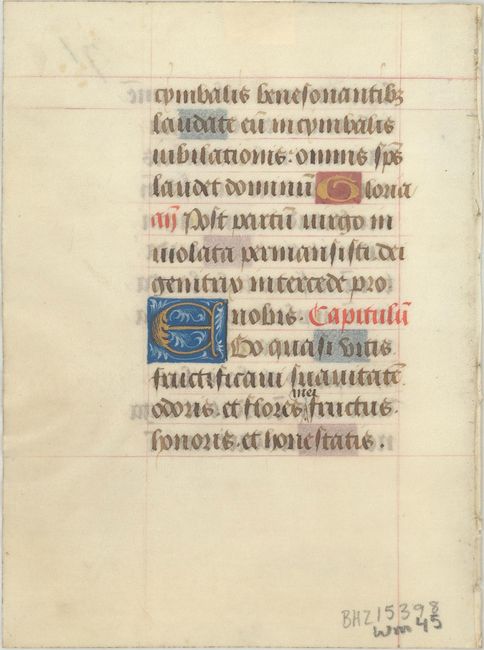 cymbalis benesonantibꝫ
laudate eū in cymbalis
iubilationis: omnis sp̄s
laudet dominū Gloria
an̄ Post partū uirgo in
uiolata permansisti dei
genitrix intercede pro
nobis. Capitulū
EGo quasi vitis
fructificaui suauitatē
mei
odoris. et flores fructus.
honoris. et honestatis.
BHZ15398
WM 45